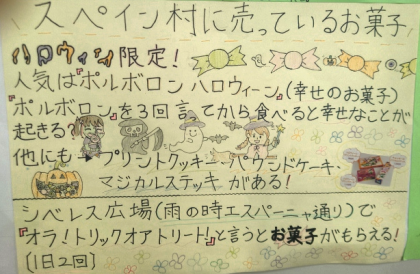 スペイン村に売っているお菓子
ハロウィン限定!
人気は『ポルボロン ハロウィーン』(幸せのお菓子)
『ポルボロン』を3回言ってから食べると幸せなことが
起きる?
他にも→プリントクッキー・パウンドケーキ・
マジカルステッキ がある!
シベレス広場(雨の時エスパーニャ通り)で
『オラ!トリックオアトリート!』と言うとお菓子がもらえる!
(1日2回)